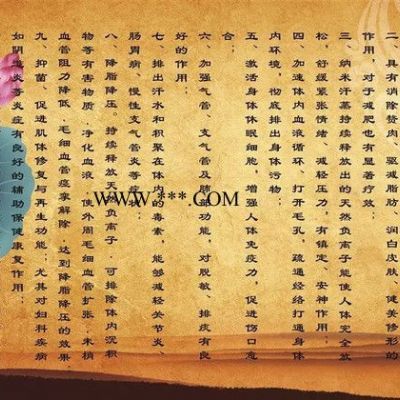 二、具有消除赘肉、驱减脂肪、润白皮肤、健美修形的
作用，对于减肥也有显著疗效；
三、纳米汗蒸持续释放出的天然负离子能使人体完全放
松，舒缓紧张情绪、减轻压力，有镇定、安神作用；
四、加速体内血液循环、打开毛孔，疏通经络打通身体
内环境，彻底排出身体污物
五、激活身体休眠细胞，增强人体免疫力，促进伤口愈
合；
六、加强气管、支气管及肺部功能，对脱敏、排痰有良
好的作用；
七、排出汗水和积聚在体内的毒素，能够减轻关节炎、
肠胃病、慢性支气管炎等病；
八、降脂降压。持续释放天然负离子，可排除体内沉积
物等有害物质，净化血液，使外周毛细血管扩张、末梢
血管阻力降低，毛细血管痉挛解除，达到降脂降压的效果
九、抑菌、促进肌体修复与再生功能；尤其对妇科疾病
如阴道炎等炎症有良好的辅助保健康复作用；
WWW.***.COM